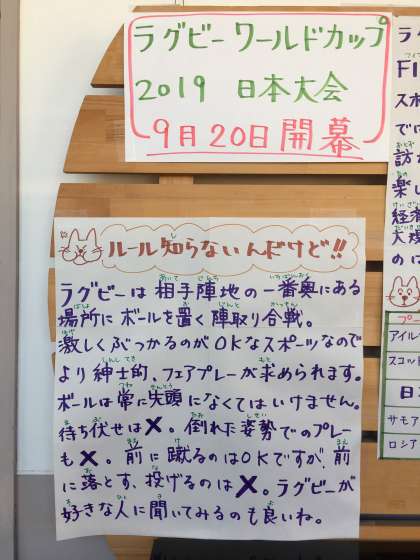 ラグビーワールドカップ
2019 日本大会
9月20日開幕
ルール知らないんだけど!!
ラグビーは相手陣地の一番奥にある
場所にボールを置く陣取り合戦。
激しくぶつかるのがOKなスポーツなので
より紳士的、フェアプレーが求められます。
ボールは常に先頭になくてはいけません。
待ち伏せは×。倒れた姿勢でのプレー
も×。前に蹴るのはOKですが、前
に落とす、投げるのは×。ラグビーが
好きな人に聞いてみるのも良いね。
ラグ
FI
スポ
で
訪
楽し
経済
大規
のは
プー
アイル
スコット
日
サモア
ロシア